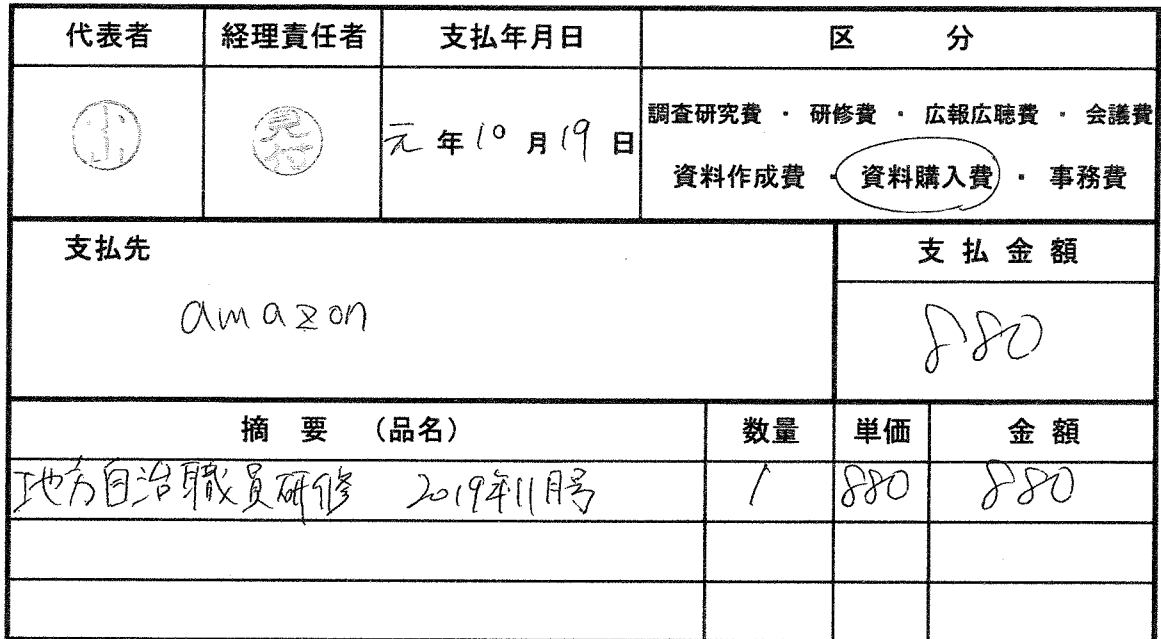 代表者 経理責任者 支払年月日 区 分
小 見付 元年10月19日 調査研究費 ・ 研修費 ・ 広報広聴費 ・ 会議費
資料作成費 ・ 資料購入費 ・ 事務費
支払先 支払金額
amazon 880
摘 要 (品名) 数量 単価 金 額
地方自治職員研修 2019年11月号 1 880 880